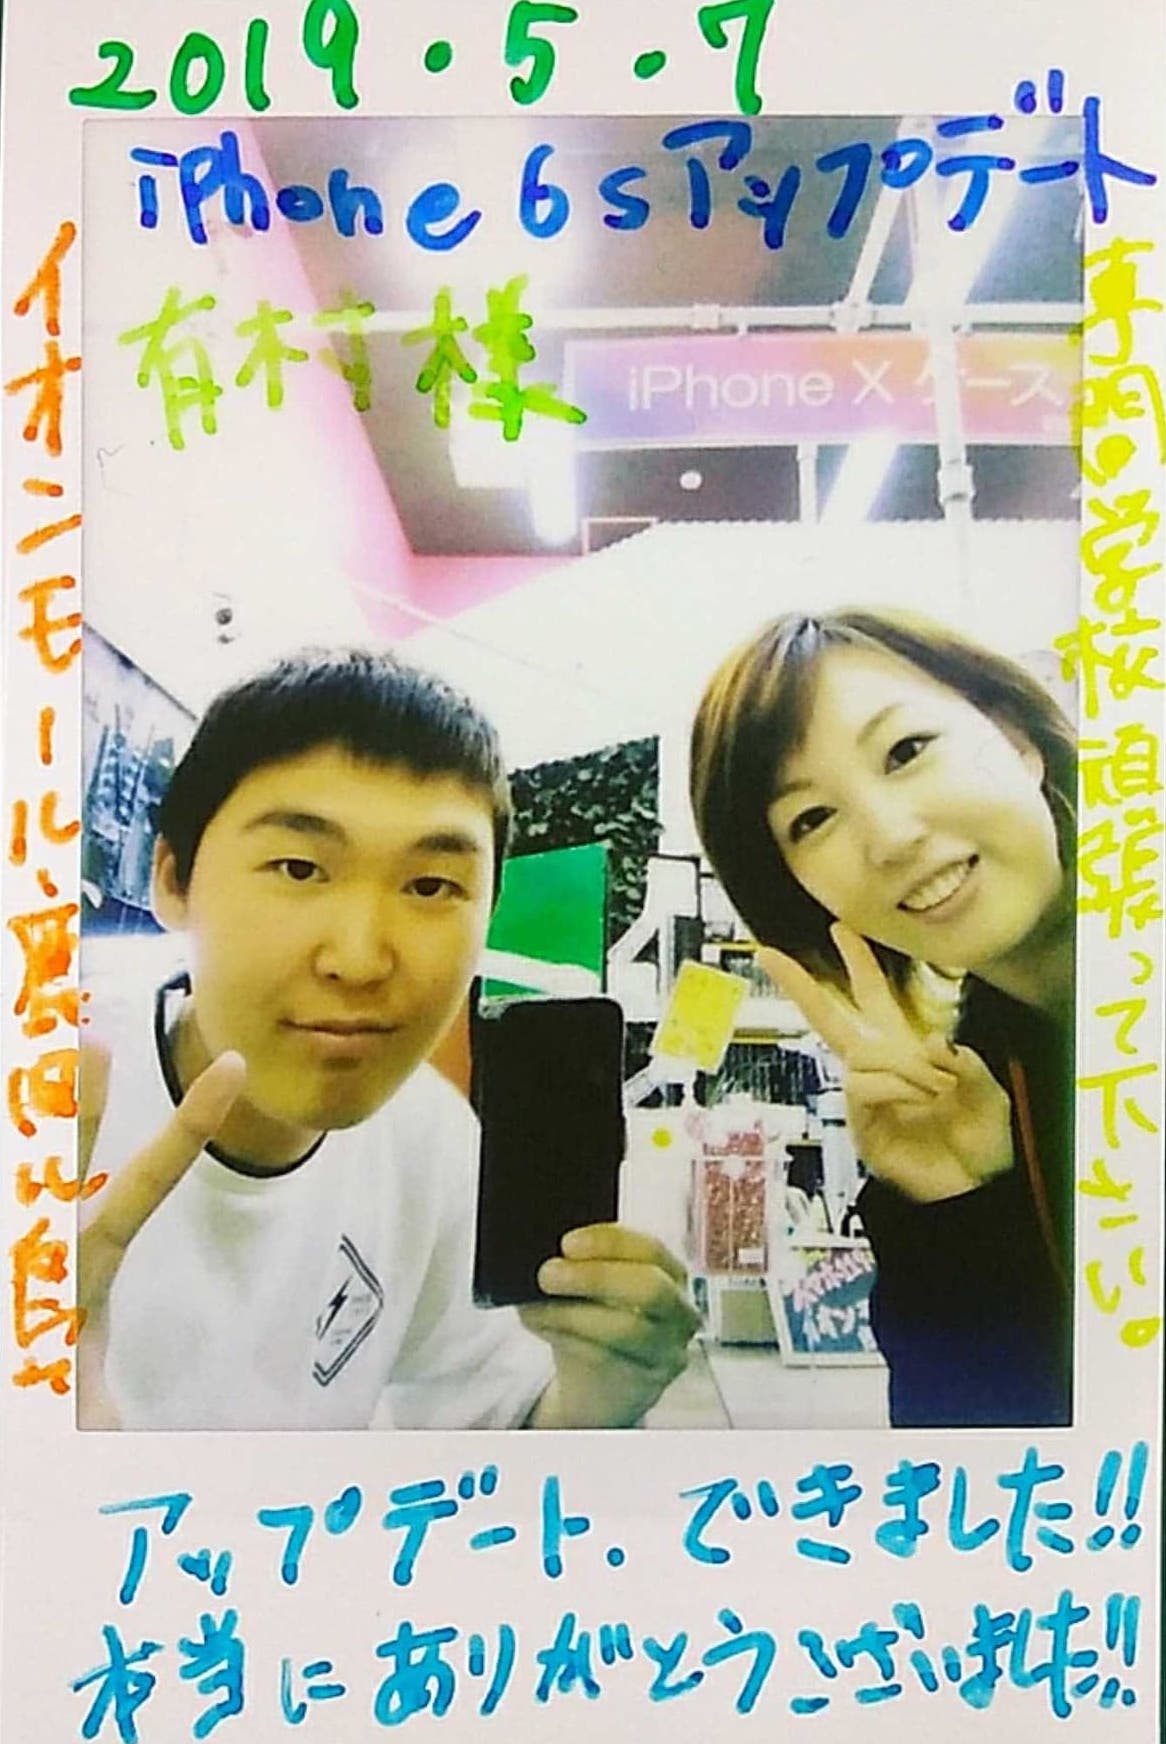 2019.5.7
iPhone 6sアップデート
有村様
iPhone X ケース
イオンモール
専門学校頑張って下さい。
アップデート.できました!!
本当にありがとうございました!!